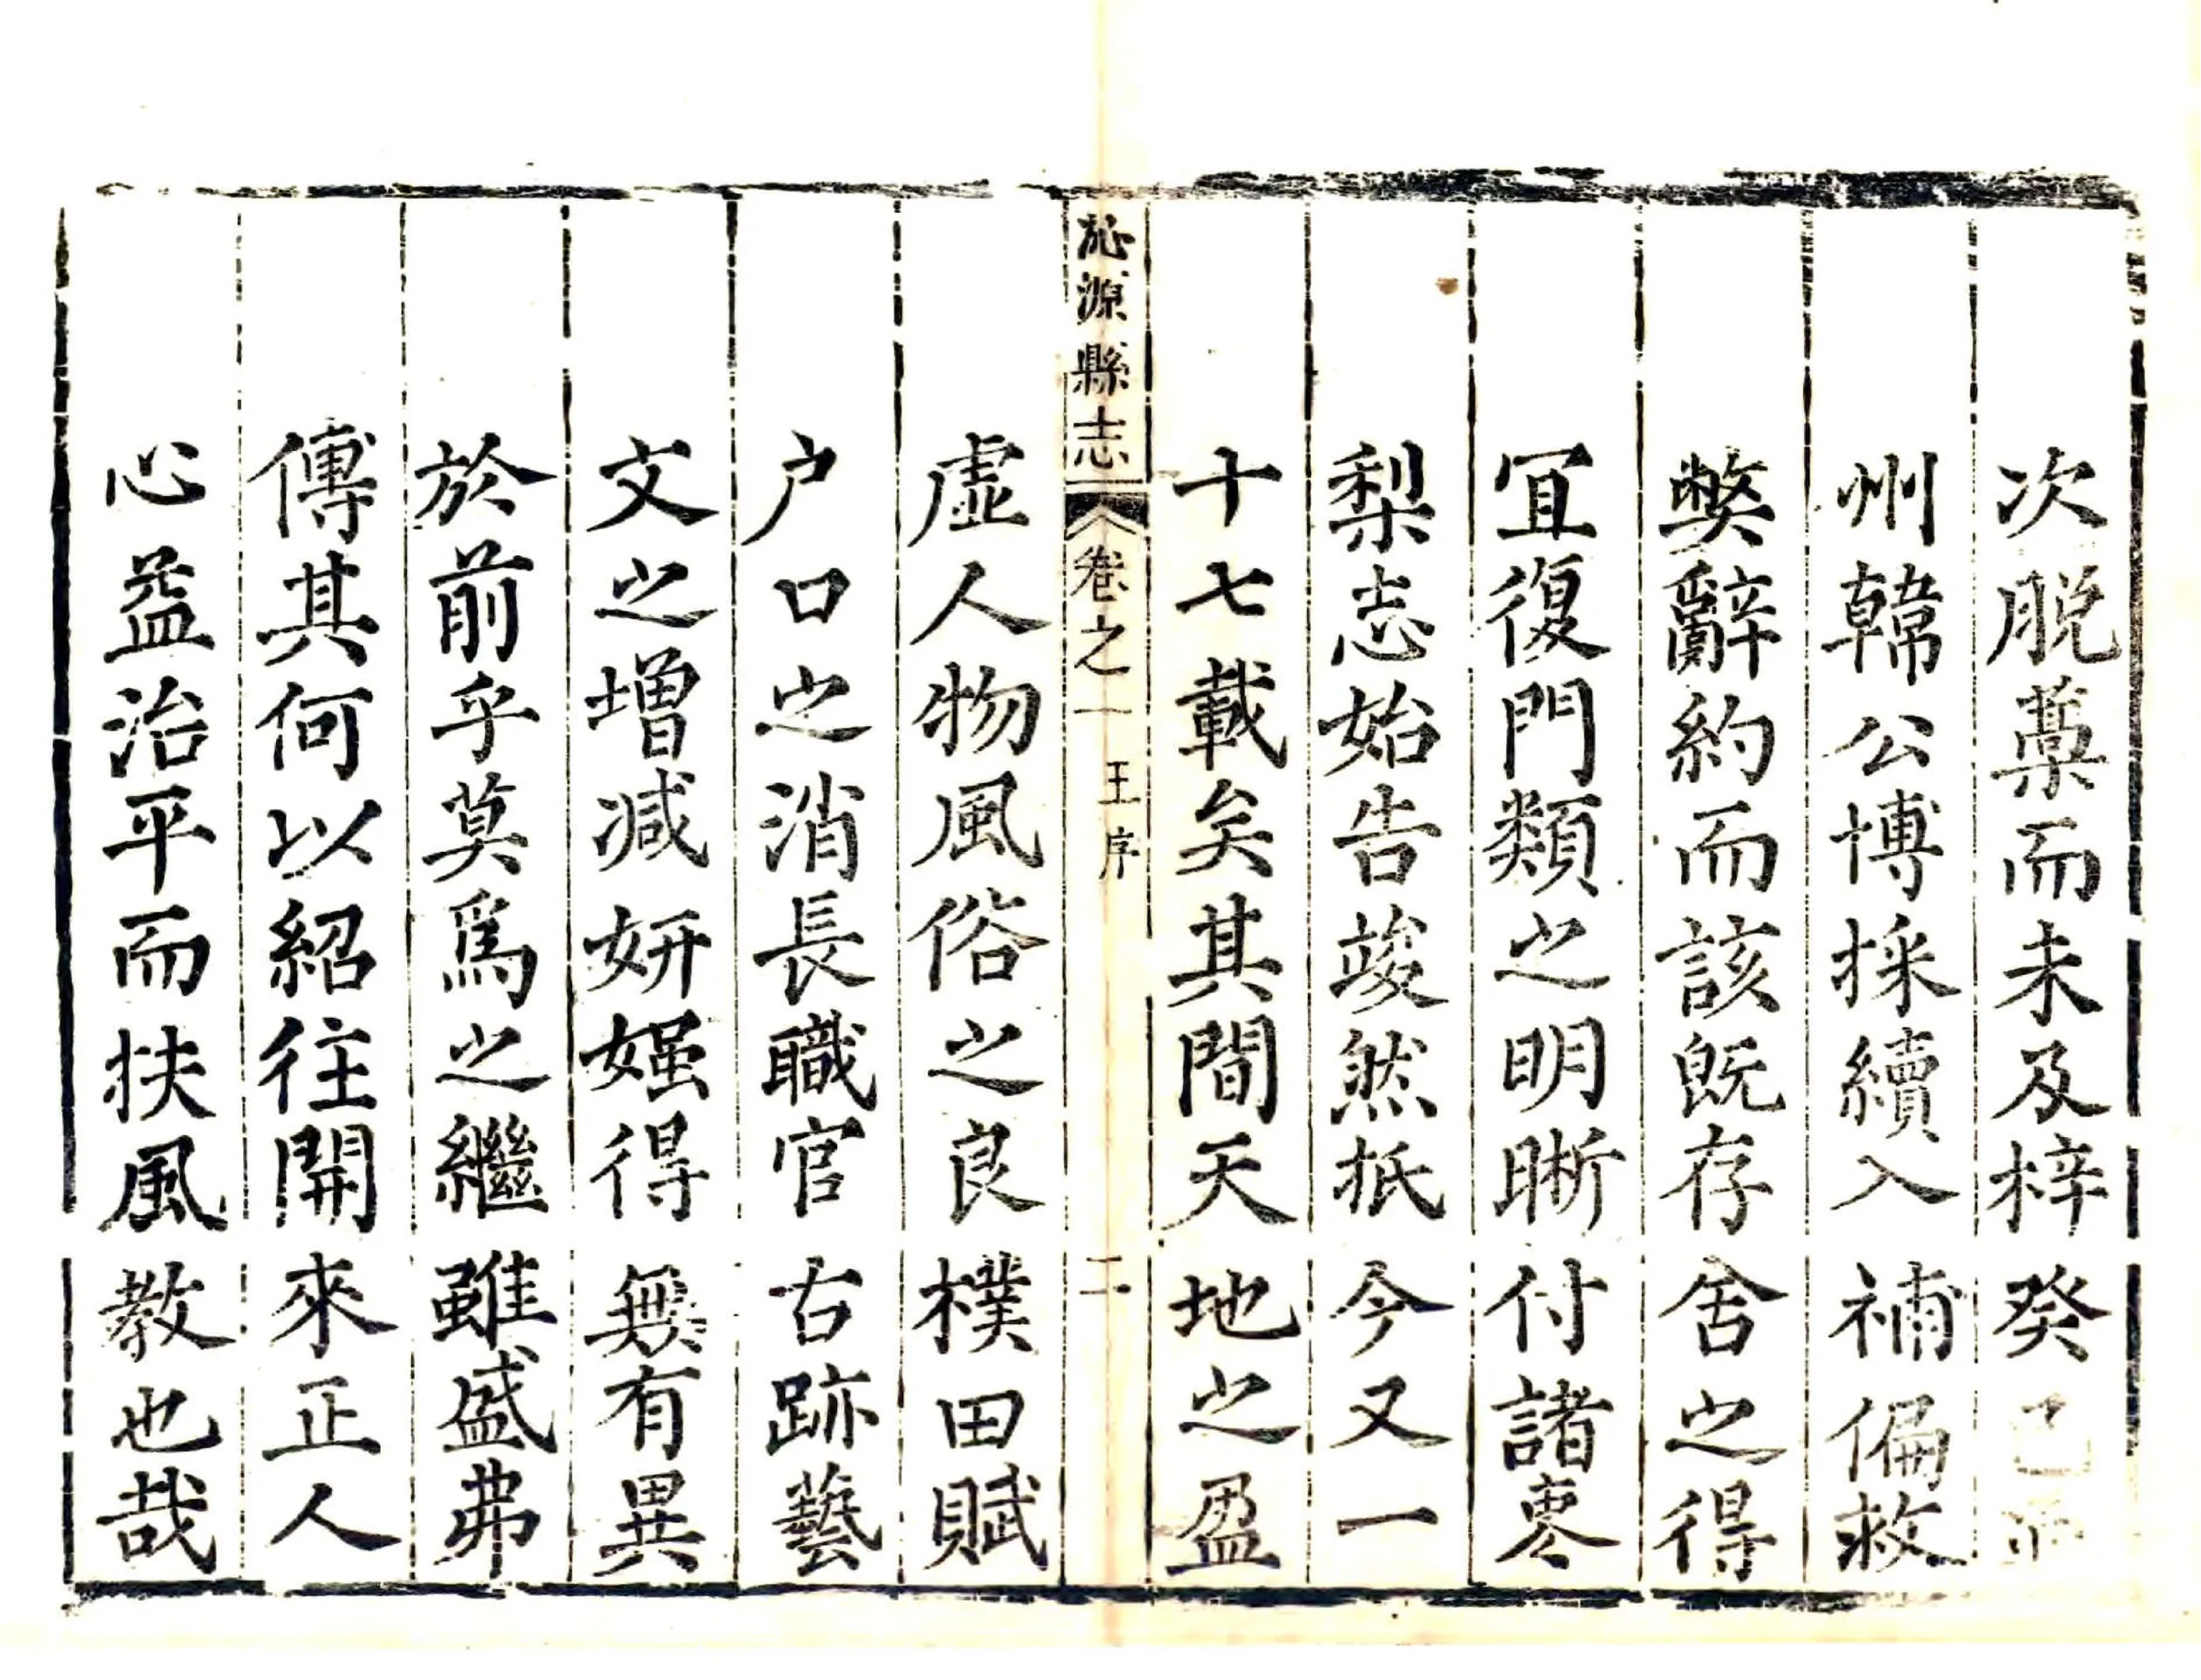 次脱藁而未及梓癸巳
州韓公博採續入補偏救
獘辭約而該既存舍之得
冝復門類之明晰付諸棗
梨志始告竣然抵今又一
十七載矣其間天地之盈
沁源縣志
卷之一
王序
二
虛人物風俗之良樸田賦
户口之消長職官古跡藝
文之增减妍媸得無有異
於前乎莫爲之繼雖盛弗
傳其何以紹往開來正人
心益治平而扶風教也哉